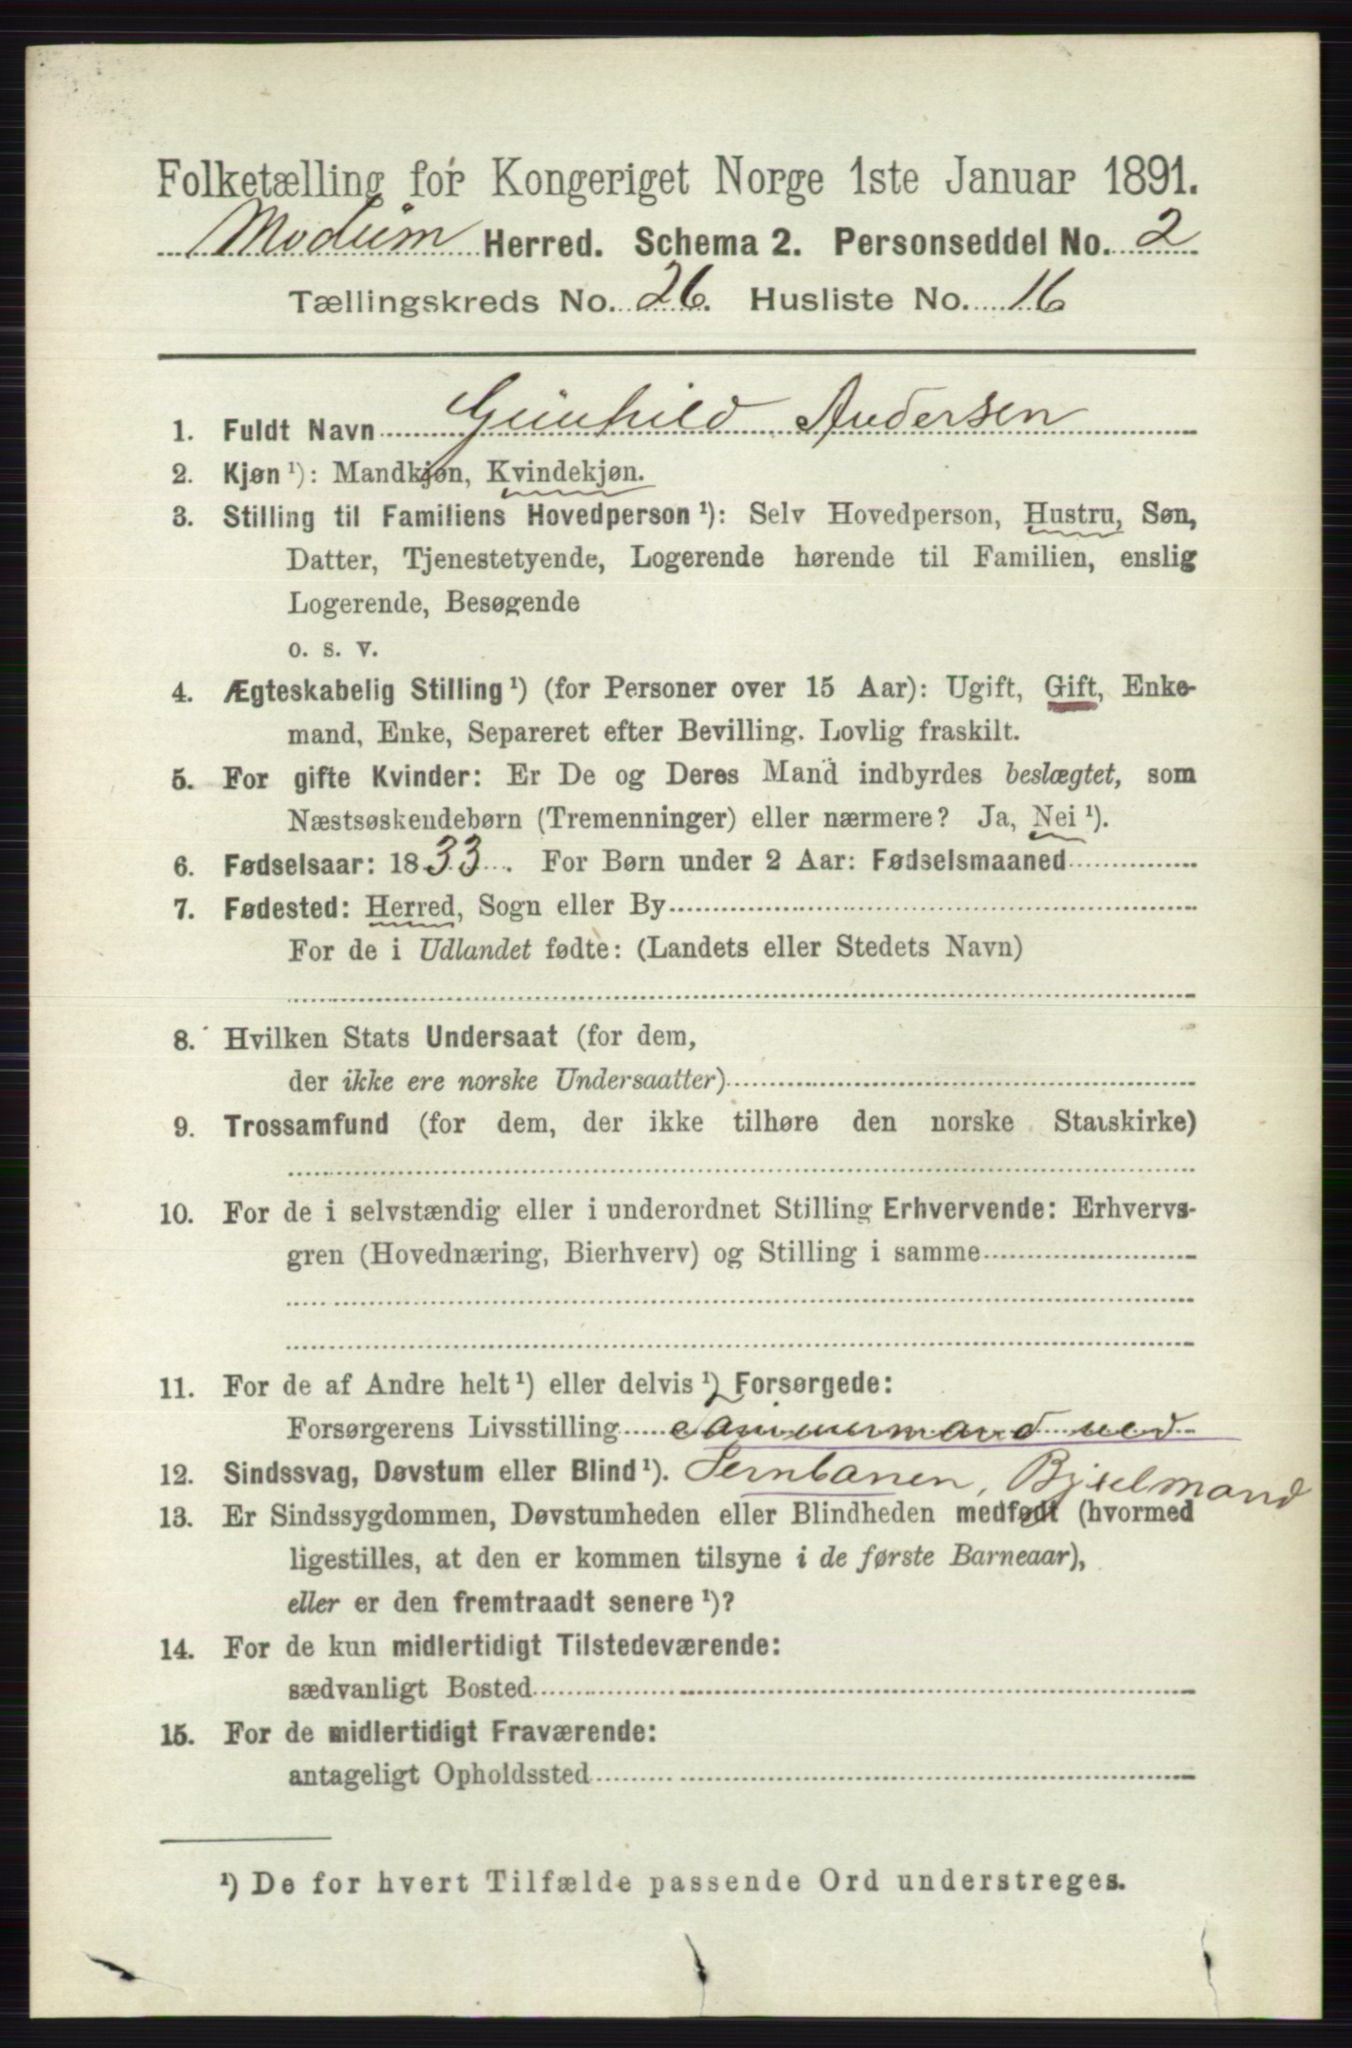 Folketælling for Kongeriget Norge 1ste Januar 1891.
Modum Herred. Schema 2. Personseddel No. 2
Tællingskreds No. 26. Husliste No. 16
1. Fuldt Navn Gunhild Andersen
2. Kjøn ¹): Mandkjøn, Kvindekjøn.
3. Stilling til Familiens Hovedperson ¹): Selv Hovedperson, Hustru, Søn,
Datter, Tjenestetyende, Logerende hørende til Familien, enslig
Logerende, Besøgende
o. s. v.
4. Ægteskabelig Stilling ¹) (for Personer over 15 Aar): Ugift, Gift, Enke-
mand, Enke, Separeret efter Bevilling. Lovlig fraskilt.
5. For gifte Kvinder: Er De og Deres Mand indbyrdes beslægtet, som
Næstsøskendebørn (Tremenninger) eller nærmere? Ja, Nei ¹).
6. Fødselsaar: 1833. For Børn under 2 Aar: Fødselsmaaned
7. Fødested: Herred, Sogn eller By
For de i Udlandet fødte: (Landets eller Stedets Navn)
8. Hvilken Stats Undersaat (for dem,
der ikke ere norske Undersaatter)
9. Trossamfund (for dem, der ikke tilhøre den norske Statskirke)
10. For de i selvstændig eller i underordnet Stilling Erhvervende: Erhvervs-
gren (Hovednæring, Bierhverv) og Stilling i samme
11. For de af Andre helt ¹) eller delvis ¹) Forsørgede:
Forsørgerens Livsstilling Tømmermand ved
12. Sindssvag, Døvstum eller Blind ¹). Jernbanen,
13. Er Sindssygdommen, Døvstumheden eller Blindheden medfødt (hvormed
ligestilles, at den er kommen tilsyne i de første Barneaar),
eller er den fremtraadt senere ¹)?
14. For de kun midlertidigt Tilstedeværende:
sædvanligt Bosted
15. For de midlertidigt Fraværende:
antageligt Opholdssted
¹) De for hvert Tilfælde passende Ord understreges.